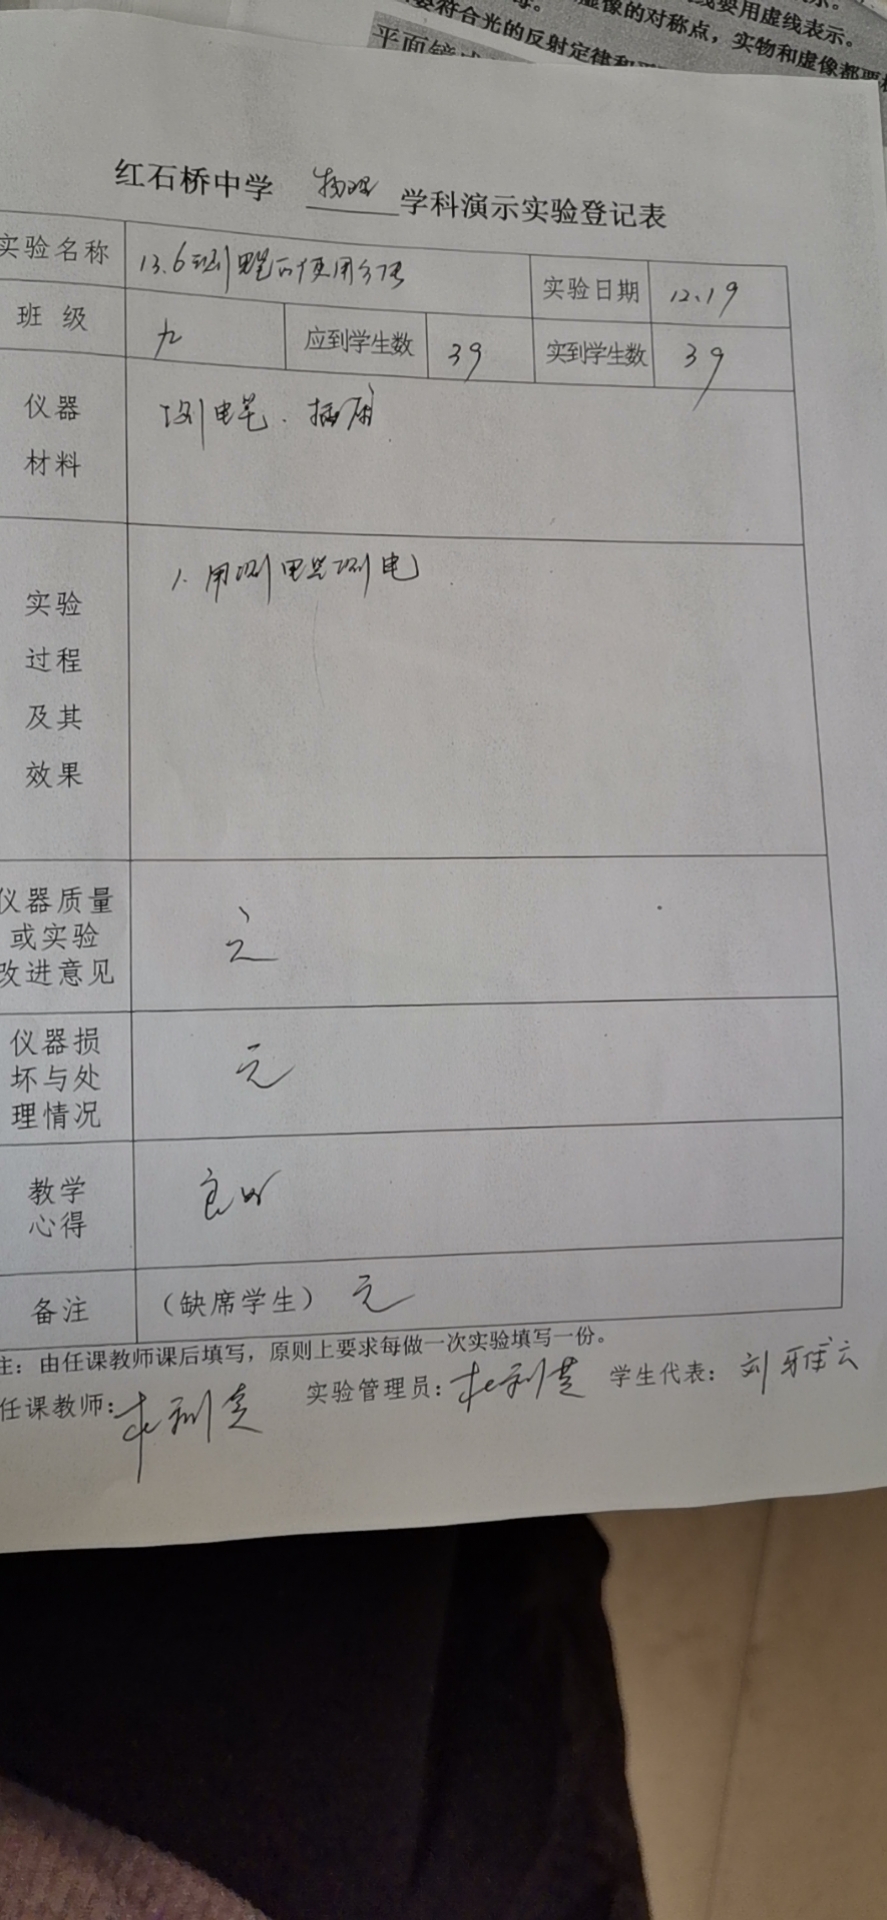 线要用虚线表示。
虚像的对称点，实物和虚像都要
要符合光的反射定律和平
平面镜
红石桥中学 物理 学科演示实验登记表
实验名称 13.6测电笔的使用方法 实验日期 12.19
班 级 九 应到学生数 39 实到学生数 39
仪器
材料
测电笔、插座
实验
过程
及其
效果
1.用测电笔测电
仪器质量
或实验
改进意见
无
仪器损
坏与处
理情况
无
教学
心得
良好
备注 （缺席学生） 无
注：由任课教师课后填写，原则上要求每做一次实验填写一份。
任课教师： 实验管理员： 学生代表：刘雅云